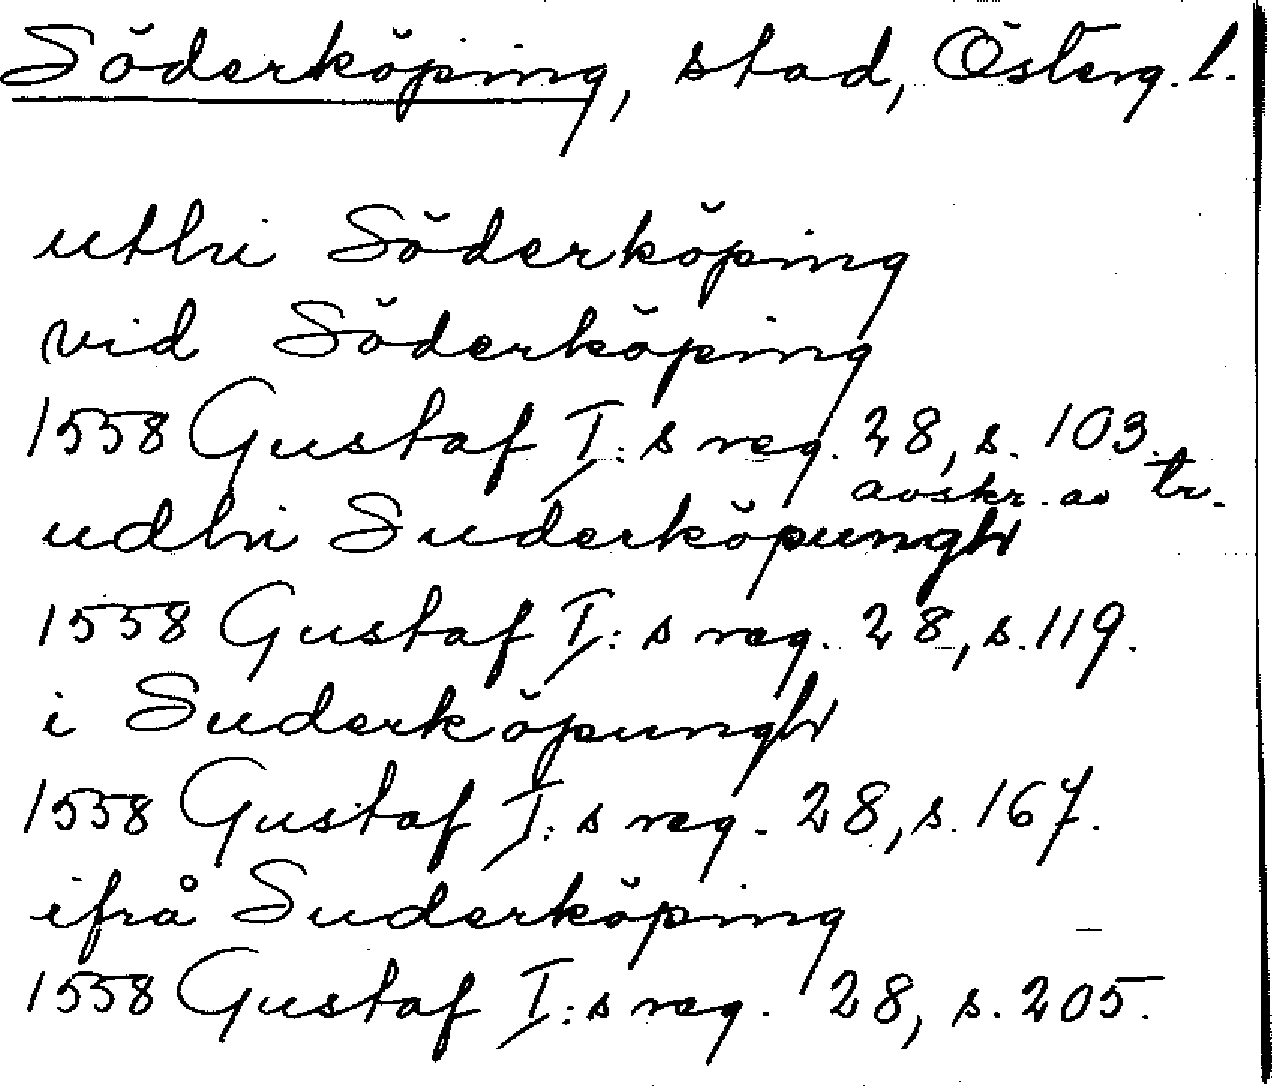 Söderköping, stad, Österg. l.
uthi Söderköping
vid Söderköping
1558 Gustaf I:s reg. 28, s. 103.
avskr. av tr.
udhi Suderköpungh
1558 Gustaf I:s reg. 28, s. 119.
i Suderköpungh
1558 Gustaf I:s reg. 28, s. 167.
ifrå Suderköping
1558 Gustaf I:s reg. 28, s. 205.